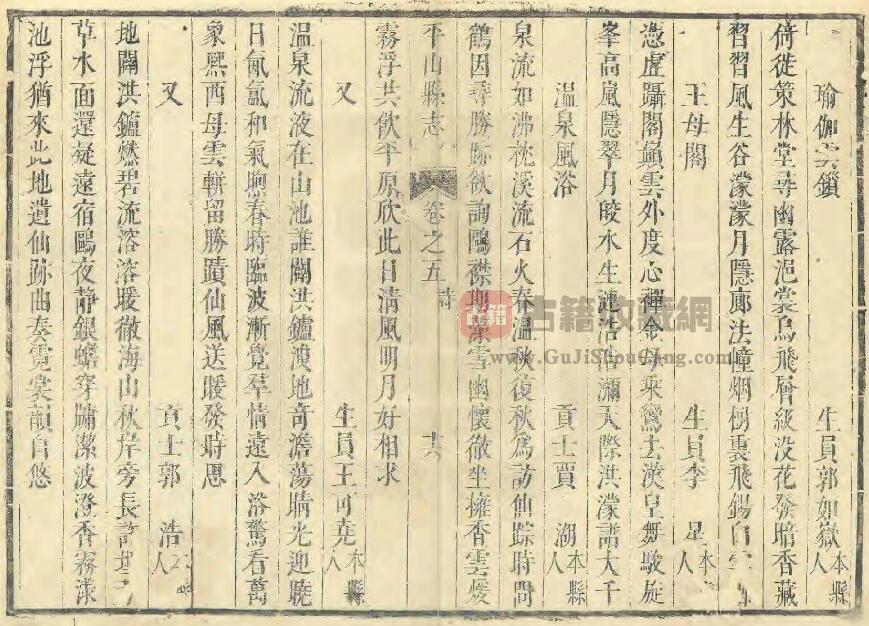 瑜伽雲鎖　生員郭如嶽本縣人
倚徙策林堂尋幽露浥裳烏飛層級没花發暗香藏
習習風生谷濛濛月隱廊法幢烟樹裏飛錫白雲
王母閣　生員李　本縣人
憑虛躡閣巔雲外度心禪金母乘鸞去漢皇舞駿旋
峯高嵐隱翠月皎水生漣浩浩瀰天際洪濛話大千
溫泉風浴　貢士賈　湖本縣人
泉流如沸枕溪流石火春溫秋復秋為訪仙踪時問
鶴因尋勝跡欲詢鷗襟期潔雪幽懷徹坐擁香雲煖
平山縣志　卷之五　詩　十六
霧浮共飲平原欣此日清風明月好相求
又　生員王可堯本縣人
溫泉流液在山池誰闢洪鑪漠地奇澹蕩晴光迎曉
日氤氳和氣煦春時臨波漸覺羣情遠入浴驚看萬
象熙西母雲軿留勝蹟仙風送暖發時思
又　貢士郭　浩本縣人
地闢洪鑪燃碧流溶溶暖徹海山秋岸旁長
草水面還疑遠宿鷗夜靜銀蟾穿牗潔波澄香霧漾
池浮猶來此地遺仙跡曲奏霓裳韻自悠
古籍
古籍收藏網
www.GuJiShouCang.com